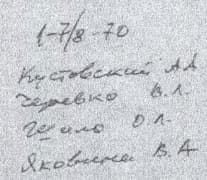 1-7/8-70
Кустовский А.А.
Черевко В.Л.
Шило О.Л.
Яковина В.А